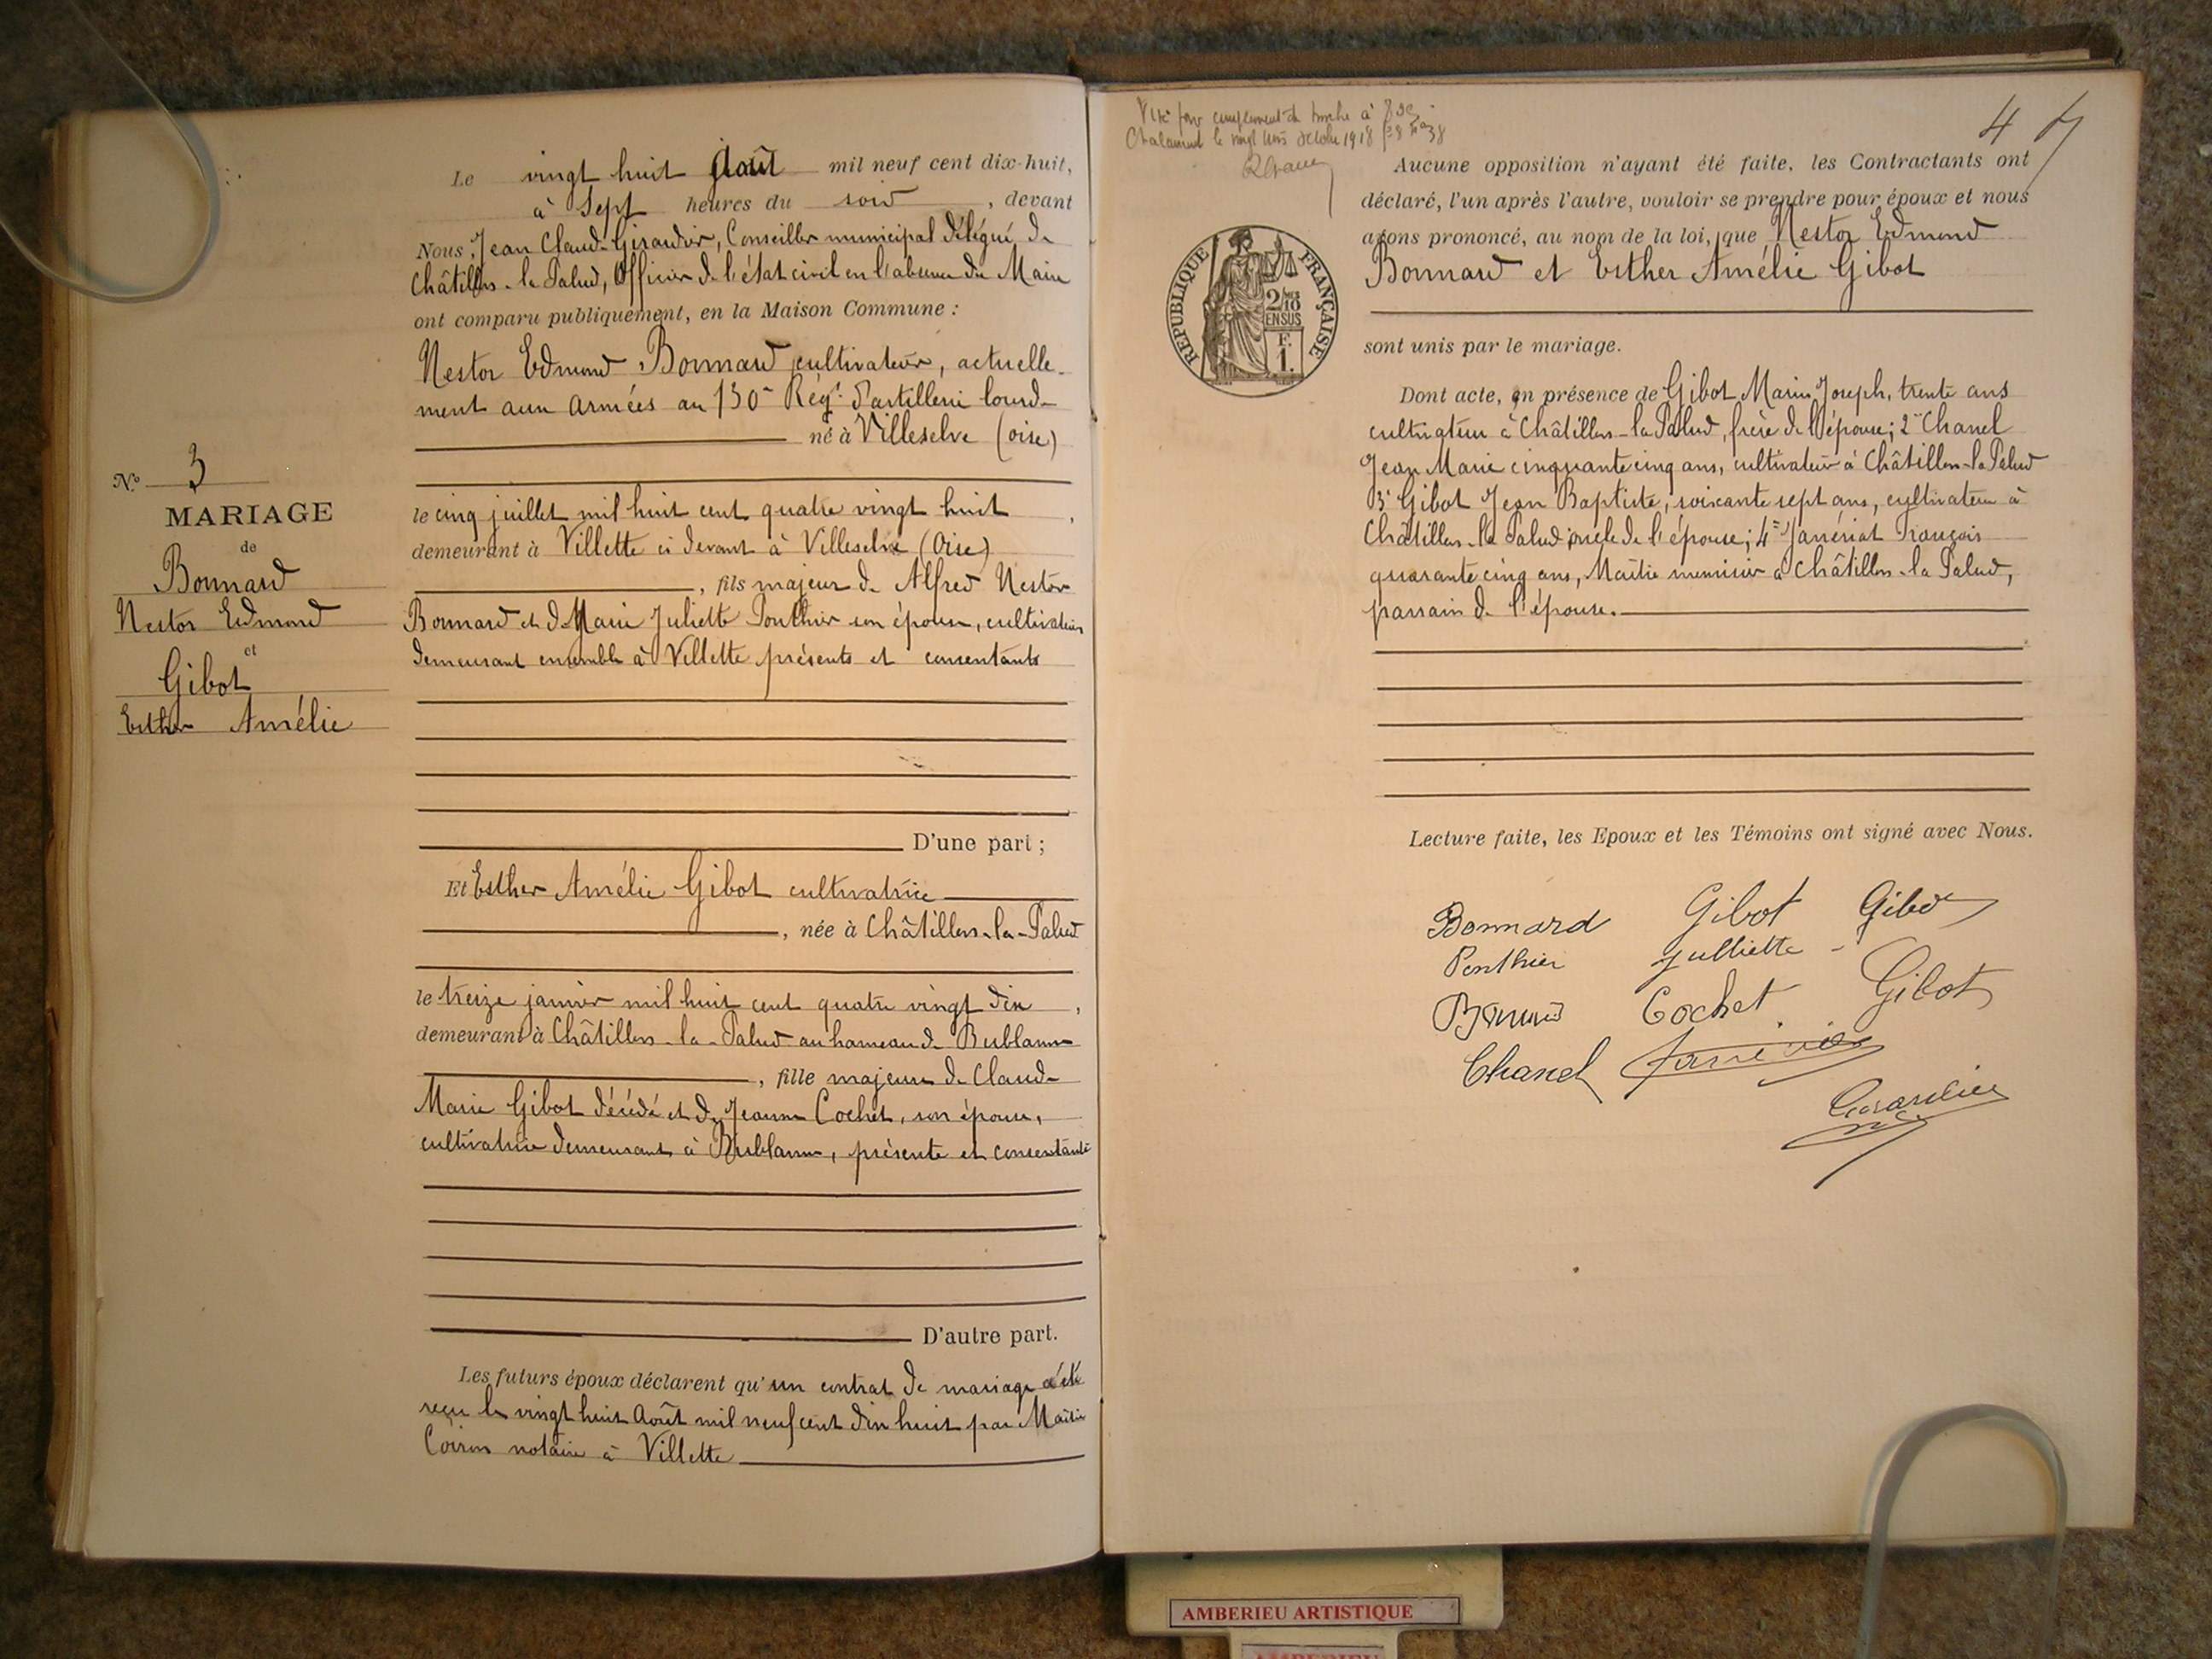 Le vingt huit Août mil neuf cent dix-huit,
à Sept heures du soir, devant
Nous, Jean Claude Girardier, Conseiller municipal délégué de
Châtillon-la-Palud, Officier de l'état civil en l'absence du Maire
ont comparu publiquement, en la Maison Commune :
Nestor Edmond Bonnard cultivateur, actuelle-
ment aux armées au 130e Régt d'artillerie lourde
né à Villeselve (Oise)
No 3
MARIAGE
de
Bonnard
Nestor Edmond
et
Gibot
Esther Amélie
le cinq juillet mil huit cent quatre vingt huit,
demeurant à Villette ci devant à Villeselve (Oise)
, fils majeur de Alfred Nestor
Bonnard et de Marie Juliette Ponthier son épouse, cultivateurs
demeurant ensemble à Villette présents et consentants
D'une part ;
Et Esther Amélie Gibot cultivatrice
, née à Châtillon-la-Palud
le treize janvier mil huit cent quatre vingt dix,
demeurant à Châtillon-la-Palud au hameau de Bublanne
, fille majeure de Claude
Marie Gibot décédé et de Jeanne Cochet, son épouse,
cultivatrice demeurant à Bublanne, présente et consentante
D'autre part.
Les futurs époux déclarent qu'un contrat de mariage a été
reçu le vingt huit Août mil neuf cent dix huit par Maître
notaire à Villette
Visé pour complément de timbre à
Chalamont le vingt trois octobre 1918
4
RÉPUBLIQUE FRANÇAISE
2/10
EN SUS
F.
1.
Aucune opposition n'ayant été faite, les Contractants ont
déclaré, l'un après l'autre, vouloir se prendre pour époux et nous
avons prononcé, au nom de la loi, que Nestor Edmond
Bonnard et Esther Amélie Gibot
sont unis par le mariage.
Dont acte, en présence de Gibot Marie Joseph, trente ans
cultivateur à Châtillon-la-Palud, frère de l'épouse; 2° Chanel
Jean Marie cinquante cinq ans, cultivateur à Châtillon-la-Palud
3° Gibot Jean Baptiste, soixante sept ans, cultivateur à
Châtillon-la-Palud oncle de l'épouse; 4° Janériat François
quarante cinq ans, Maître menuisier à Châtillon-la-Palud,
parrain de l'épouse.
Lecture faite, les Epoux et les Témoins ont signé avec Nous.
Bonnard Gibot Gibot
Ponthier Julliette
Bonnard Cochet Gibot
Chanel Janériat
Girardier
AMBERIEU ARTISTIQUE
AMBERIEU